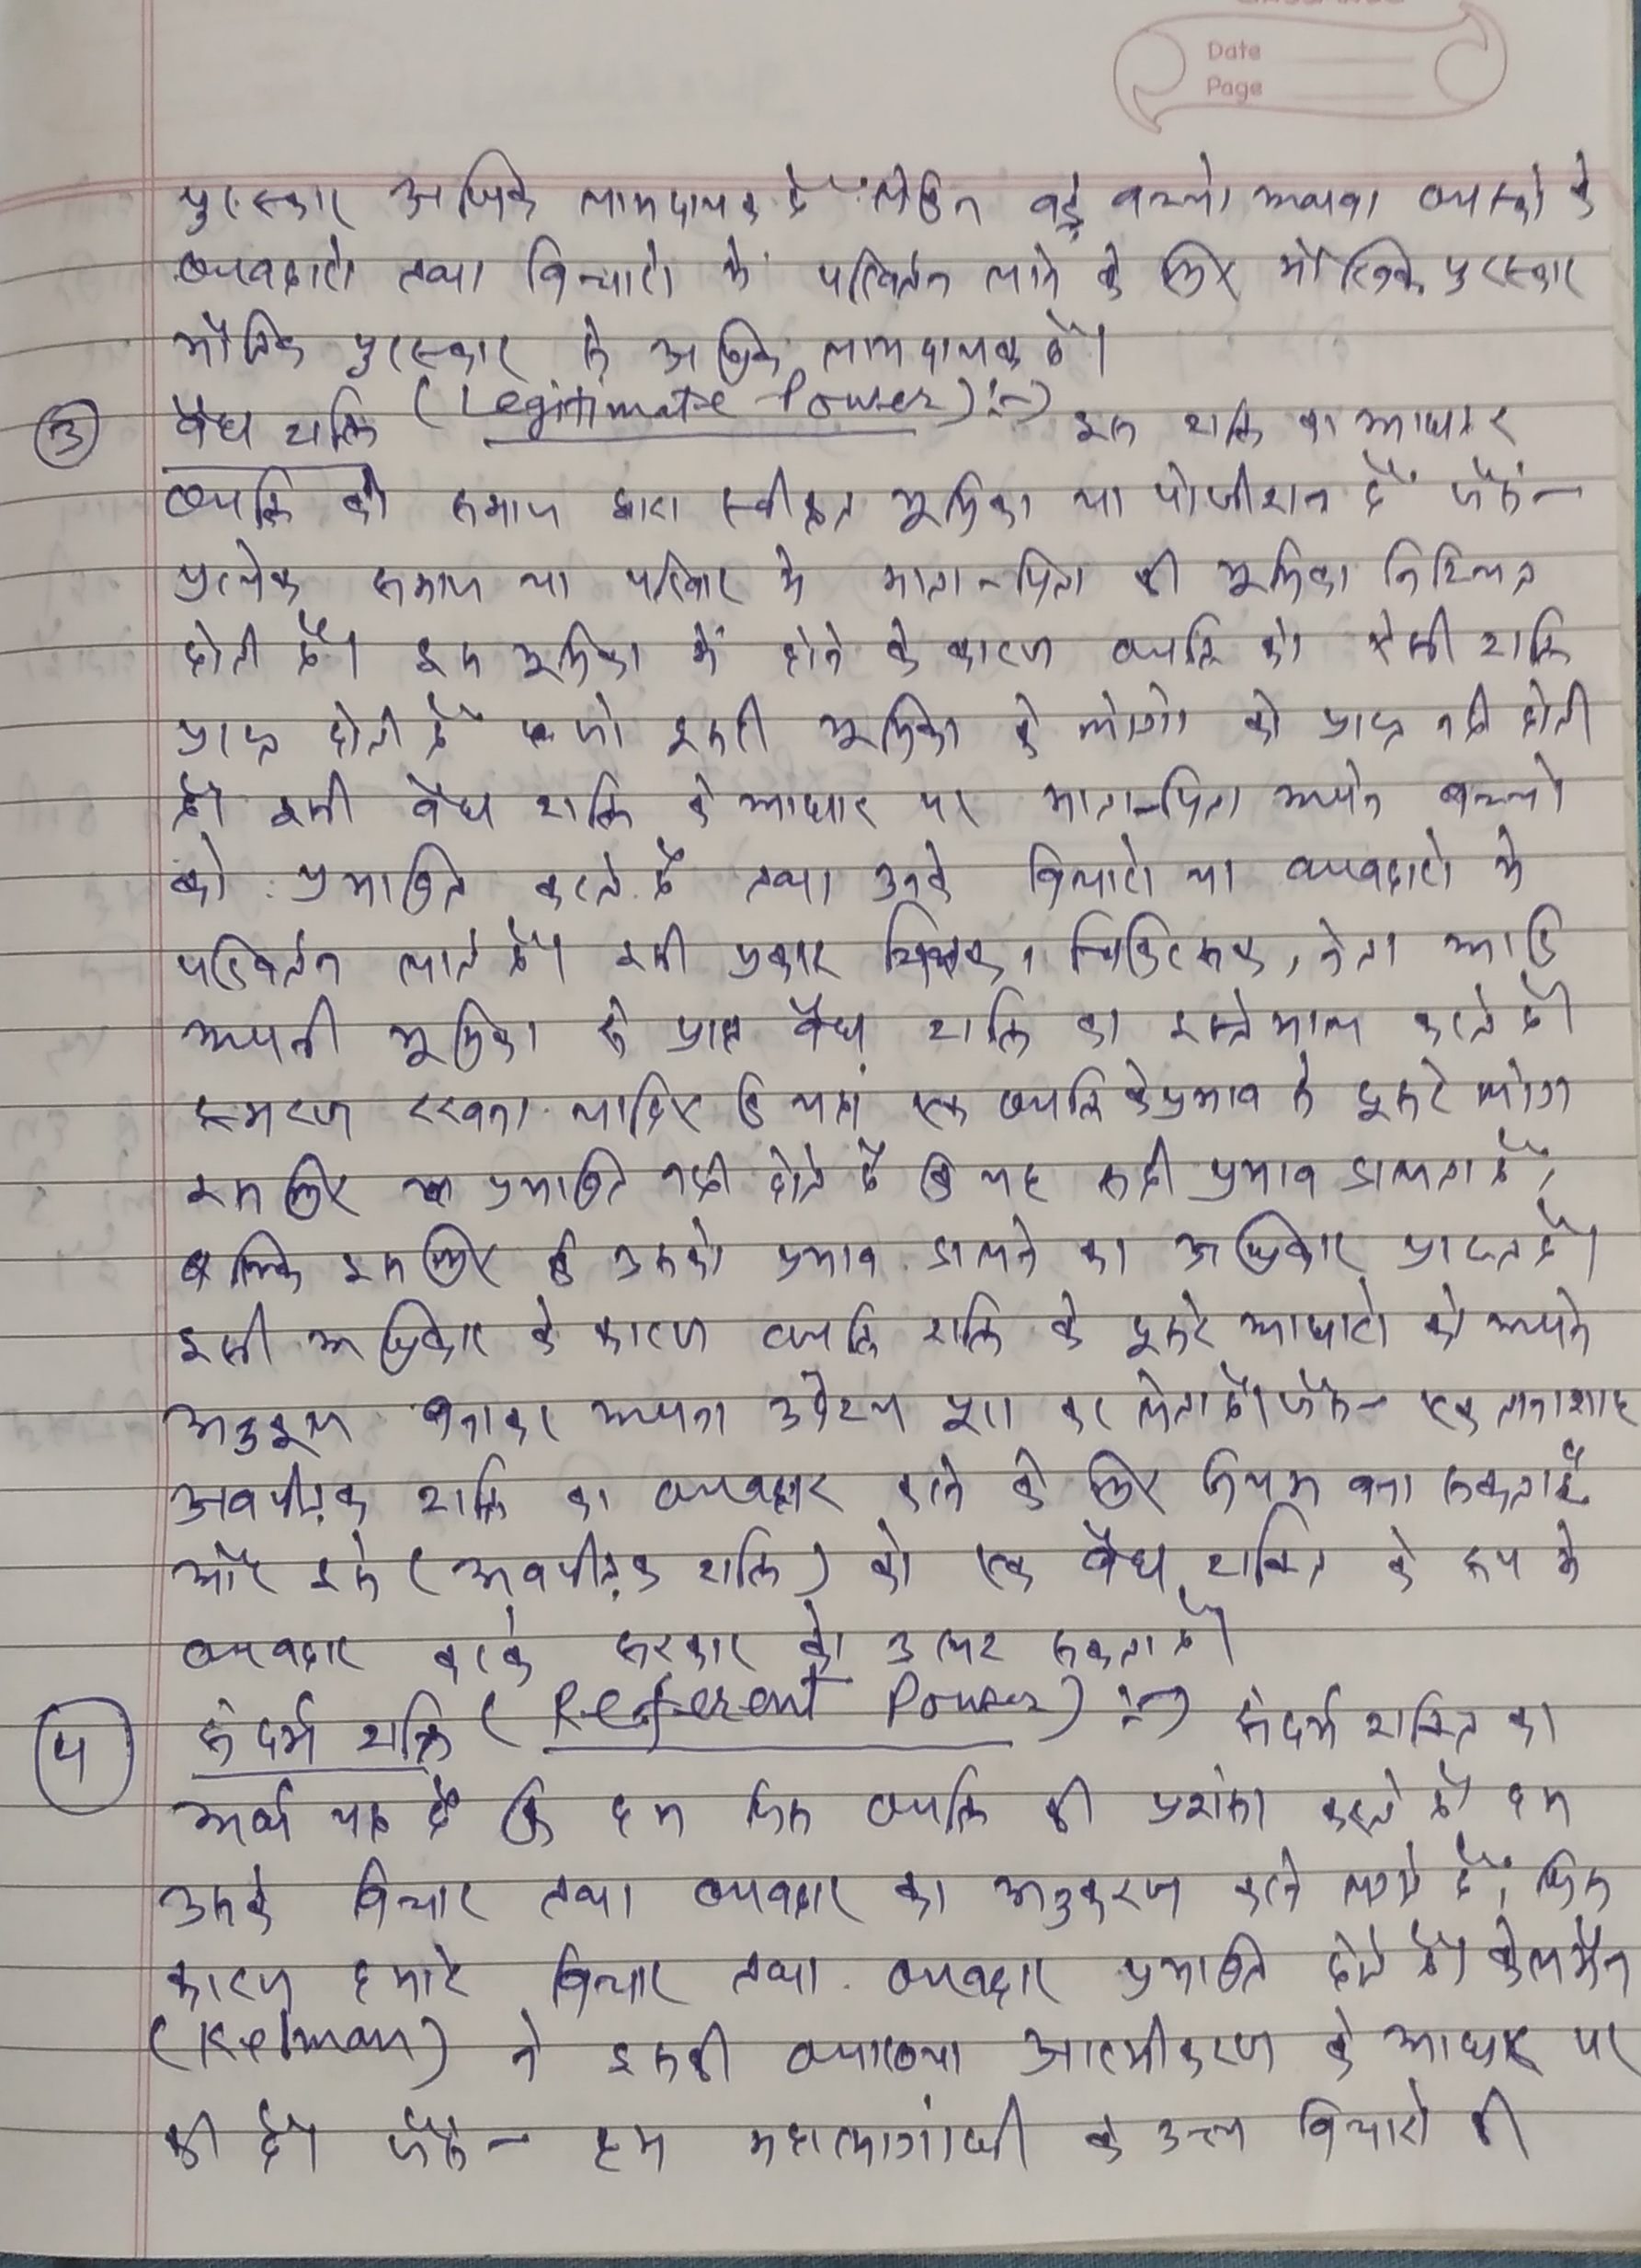 Date
Page
पुरस्कार अधिक लाभदायक है लेकिन बड़े बच्चो अथवा व्यस्को के
व्यवहारो तथा विचारो मे परिवर्तन लाने के लिए मौखिक पुरस्कार
भौतिक पुरस्कार से अधिक लाभदायक है।
③ वैध शक्ति (Legitimate Power) :→ इस शक्ति का आधार
व्यक्ति की समाज द्वारा स्वीकृत भूमिका या पोजीशन है जैसे-
प्रत्येक समाज या परिवार मे माता-पिता की भूमिका निश्चित
होती है। इस भूमिका मे होने के कारण व्यक्ति को ऐसी शक्ति
प्राप्त होती है जो दुसरी भूमिका के लोगो को प्राप्त नही होती
है। इसी वैध शक्ति के आधार पर माता-पिता अपने बच्चो
को प्रभावित करते है तथा उनके विचारो या व्यवहारो मे
परिवर्तन लाते है। इसी प्रकार शिक्षक, चिकित्सक, नेता आदि
अपनी भूमिका से प्राप्त वैध शक्ति का इस्तेमाल करते है।
स्मरण रखना चाहिए कि यहां एक व्यक्ति के प्रभाव से दूसरे लोग
इस लिए प्रभावित नही होते है कि यह सही प्रभाव डालता है,
बल्कि इस लिए कि उसको प्रभाव डालने का अधिकार प्राप्त है।
इसी अधिकार के कारण व्यक्ति शक्ति के दूसरे आधारो को अपने
अनुकूल बनाकर अपना उद्देश्य पूरा कर लेता है। जैसे- एक तानाशाह
अवपीड़क शक्ति का व्यवहार करने के लिए नियम बना सकता है
और इसे (अवपीड़क शक्ति) को एक वैध शक्ति के रूप मे
व्यवहार करके सरकार को उलट सकता है।
④ संदर्भ शक्ति (Referent Power) :→ संदर्भ शक्ति का
अर्थ यह है कि हम जिस व्यक्ति की प्रशंसा करते है हम
उसके विचार तथा व्यवहार का अनुकरण करने लगते है, जिस
कारण हमारे विचार तथा व्यवहार प्रभावित होते है। केलमैन
(Kelman) ने इसकी व्याख्या आत्मीकरण के आधार पर
की है। जैसे- हम महात्मा गांधी के उच्च विचारो की